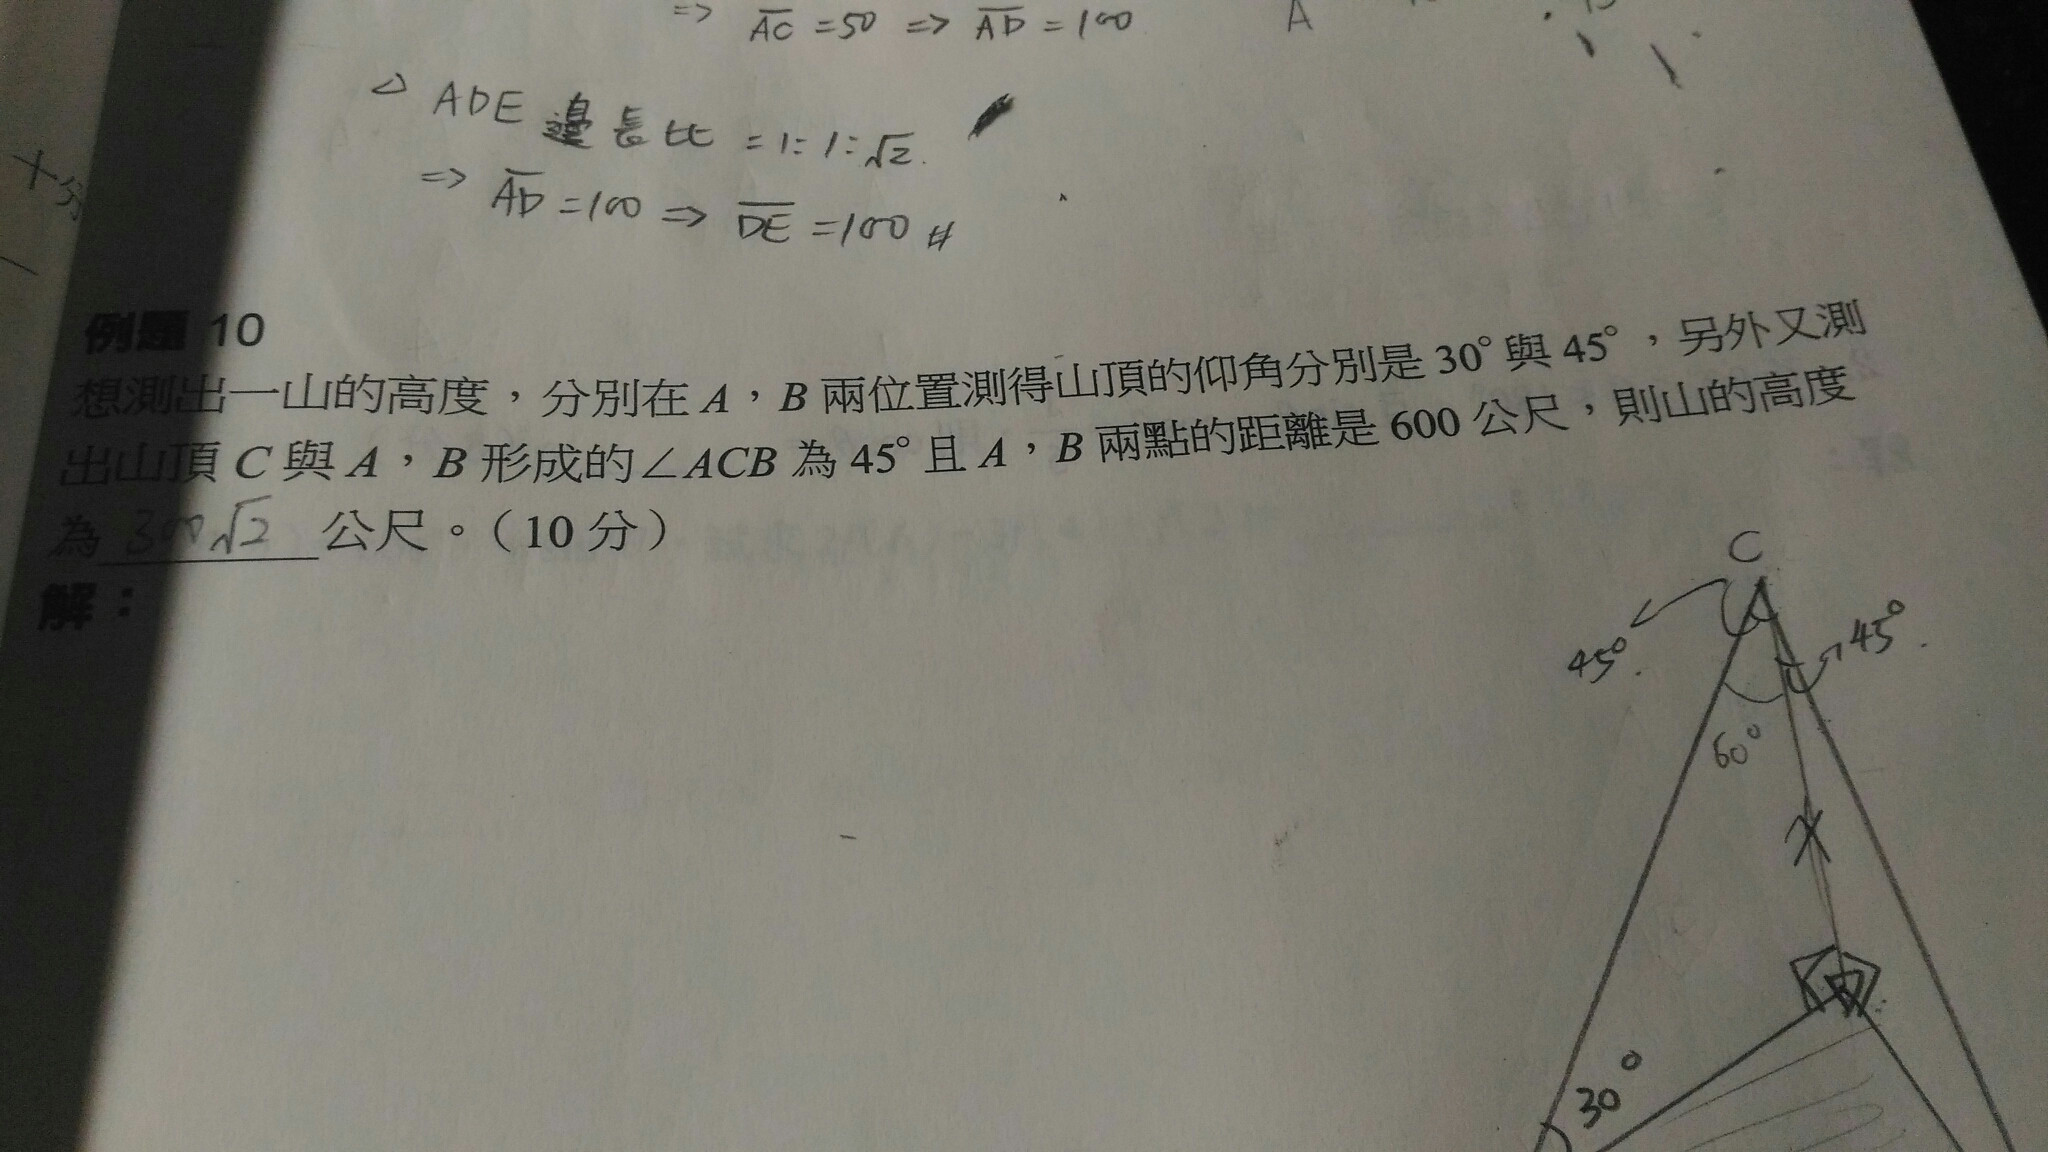 ⇒ AC = 50 ⇒ AD = 100
A
△ ADE 邊長比 = 1:1:√2.
⇒ AD = 100 ⇒ DE = 100 #
分
例題 10
想測出一山的高度,分別在 A,B 兩位置測得山頂的仰角分別是 30° 與 45°,另外又測
出山頂 C 與 A,B 形成的∠ACB 為 45° 且 A,B 兩點的距離是 600 公尺,則山的高度
為 300√2 公尺。(10 分)
解:
C
45°.
45°.
60°
30°